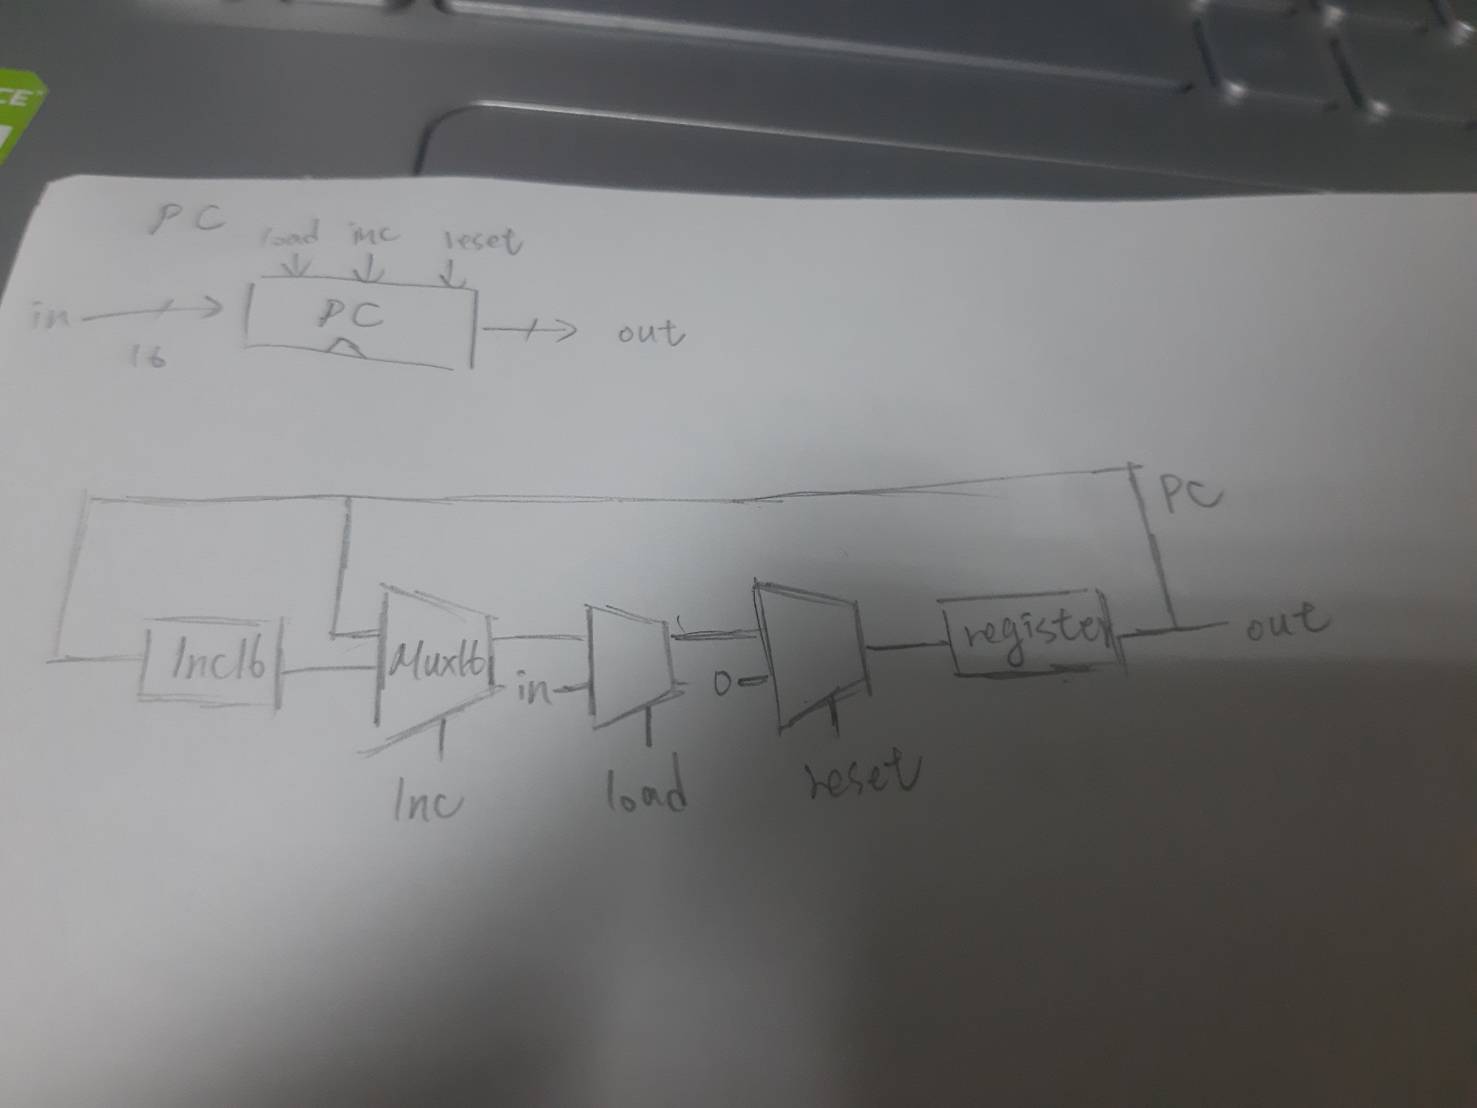 CE
PC
load inc reset
in
16
PC
out
PC
Inc16
Mux16
in
0
register
out
Inc
load
reset